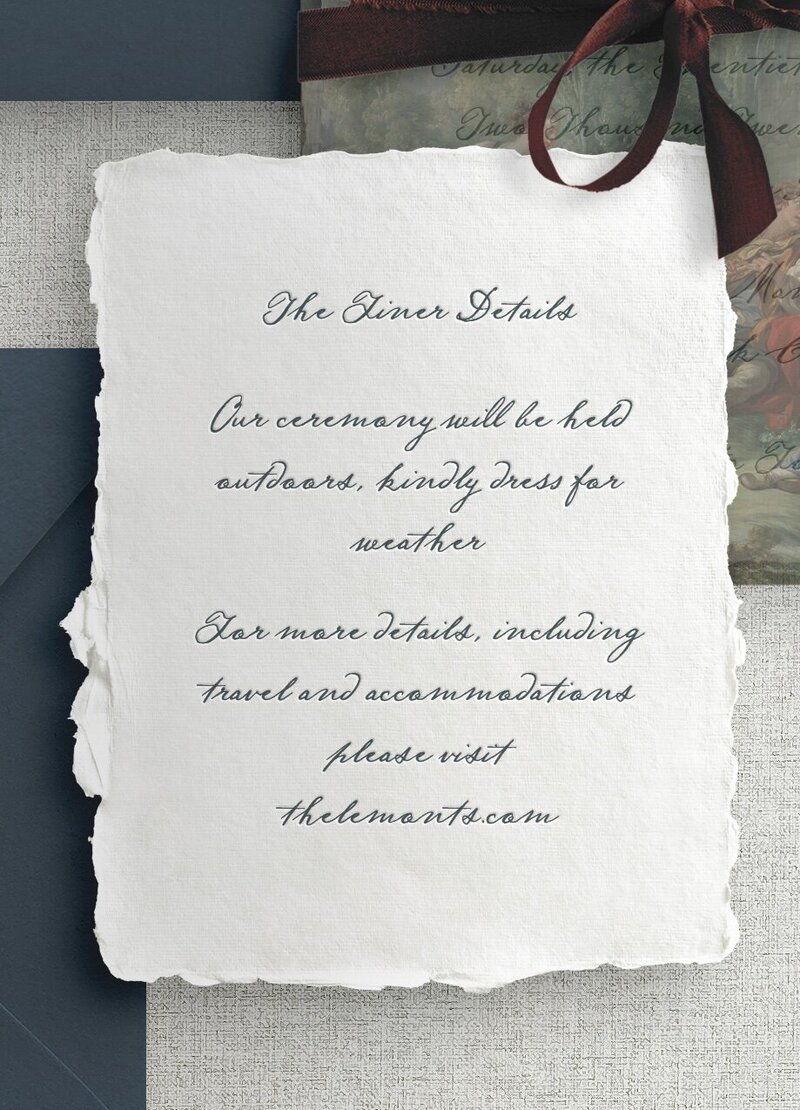 Saturday, the
The Finer Details
Our ceremony will be held
outdoors, kindly dress for
weather
For more details, including
travel and accommodations
please visit
thelemonts.com